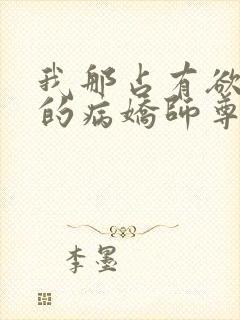 我那占有欲
的病嬌師尊
李墨